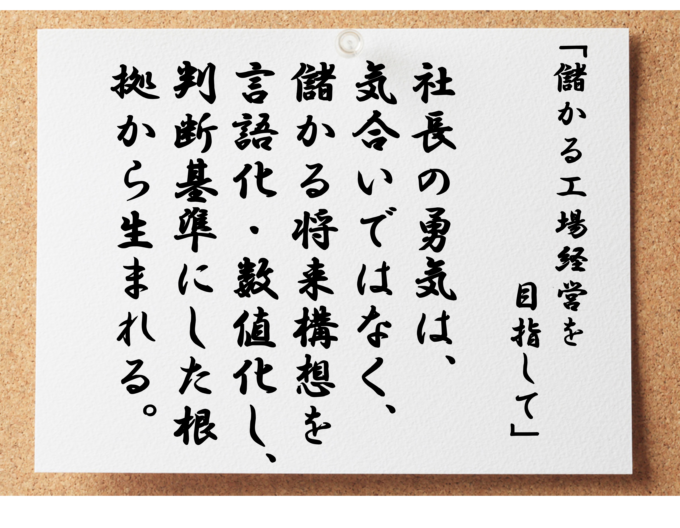 「儲かる工場経営を
目指して」
社長の勇気は、
気合いではなく、
儲かる将来構想を
言語化・数値化し、
判断基準にした根
拠から生まれる。